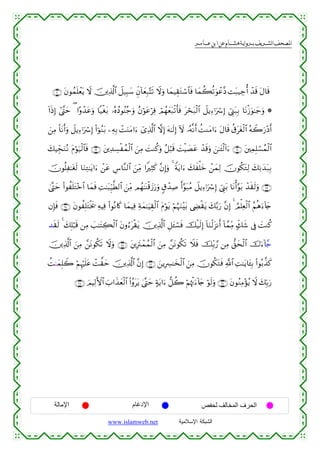 المصحف الشريف برواية هشام عن ابن عامر
قَالَ قَدْ أُجِيبَت دَّعْوَتُكُمَا فَٱسْتَقِيمَا وَلَا تَتَّبِعَآنِّ سَبِيلَ ٱلَّذِينَ لَا يَعْلَمُونَ
۞ وَجَٰوَزْنَا بِبَنِىٓ إِسْرَٰٓءِيلَ ٱلْبَحْرَ فَأَتْبَعَهُمْ فِرْعَوْنُ وَجُنُودُهُۥ بَغْيًا وَعَدْوًا حَتَّىٰٓ إِذَآ
أَدْرَكَهُ ٱلْغَرَقُ قَالَ ءَامَنتُ أَنَّهُۥ لَآ إِلَٰهَ إِلَّا ٱلَّذِىٓ ءَامَنَتْ بِهِۦ بَنُوٓا۟ إِسْرَٰٓءِيلَ وَأَنَا۠ مِنَ
ٱلْمُسْلِمِينَ ءَآلْـَٰٔنَ وَقَدْ عَصَيْتَ قَبْلُ وَكُنتَ مِنَ ٱلْمُفْسِدِينَ فَٱلْيَوْمَ نُنَجِّيكَ
بِبَدَنِكَ لِتَكُونَ لِمَنْ خَلْفَكَ ءَايَةً وَإِنَّ كَثِيرًا مِّنَ ٱلنَّاسِ عَنْ ءَايَٰتِنَا لَغَٰفِلُونَ
وَلَقَدْ بَوَّأْنَا بَنِىٓ إِسْرَٰٓءِيلَ مُبَوَّأَ صِدْقٍ وَرَزَقْنَٰهُم مِّنَ ٱلطَّيِّبَٰتِ فَمَا ٱخْتَلَفُوا۟ حَتَّىٰ
جَآءَهُمُ ٱلْعِلْمُ إِنَّ رَبَّكَ يَقْضِى بَيْنَهُمْ يَوْمَ ٱلْقِيَٰمَةِ فِيمَا كَانُوا۟ فِيهِ يَخْتَلِفُونَ فَإِن
كُنتَ فِى شَكٍّ مِّمَّآ أَنزَلْنَآ إِلَيْكَ فَسْـَٔلِ ٱلَّذِينَ يَقْرَءُونَ ٱلْكِتَٰبَ مِن قَبْلِكَ لَقَد
جَّآءَكَ ٱلْحَقُّ مِن رَّبِّكَ فَلَا تَكُونَنَّ مِنَ ٱلْمُمْتَرِينَ وَلَا تَكُونَنَّ مِنَ ٱلَّذِينَ
كَذَّبُوا۟ بِـَٔايَٰتِ ٱللَّهِ فَتَكُونَ مِنَ ٱلْخَٰسِرِينَ إِنَّ ٱلَّذِينَ حَقَّتْ عَلَيْهِمْ كَلِمَٰتُ
رَبِّكَ لَا يُؤْمِنُونَ وَلَوْ جَآءَتْهُمْ كُلُّ ءَايَةٍ حَتَّىٰ يَرَوُا۟ ٱلْعَذَابَ ٱلْأَلِيمَ
الحرف المخالف لحفص الإدغام الإمالة
الشبكة الإسلامية www.islamweb.net